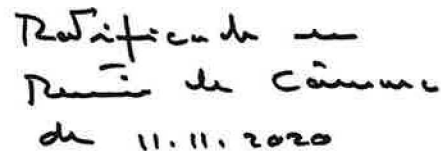 Ratificado em
Reunião de Câmara
de 11.11.2020